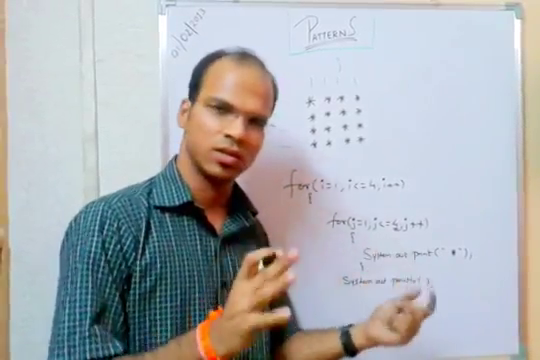 01/02/2013
PATTERNS
* * * *
* * * *
* * * *
* * * *
for(i=1, i<=4, i++)
{
for(j=1, j<=4, j++)
{
System out print(" * ");
}
System out println( );